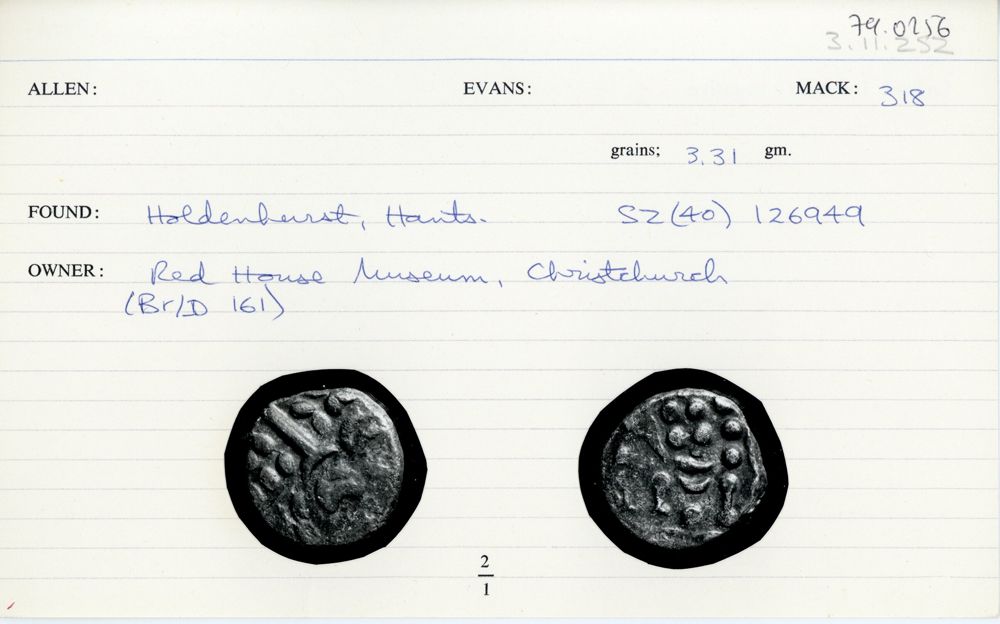 79.0256
3.11.252
ALLEN: EVANS: MACK: 318
grains; 3.31 gm.
FOUND: Holdenhurst, Hants. SZ(40) 126949
OWNER: Red House Museum, Christchurch
(Br/D 161)
2
1